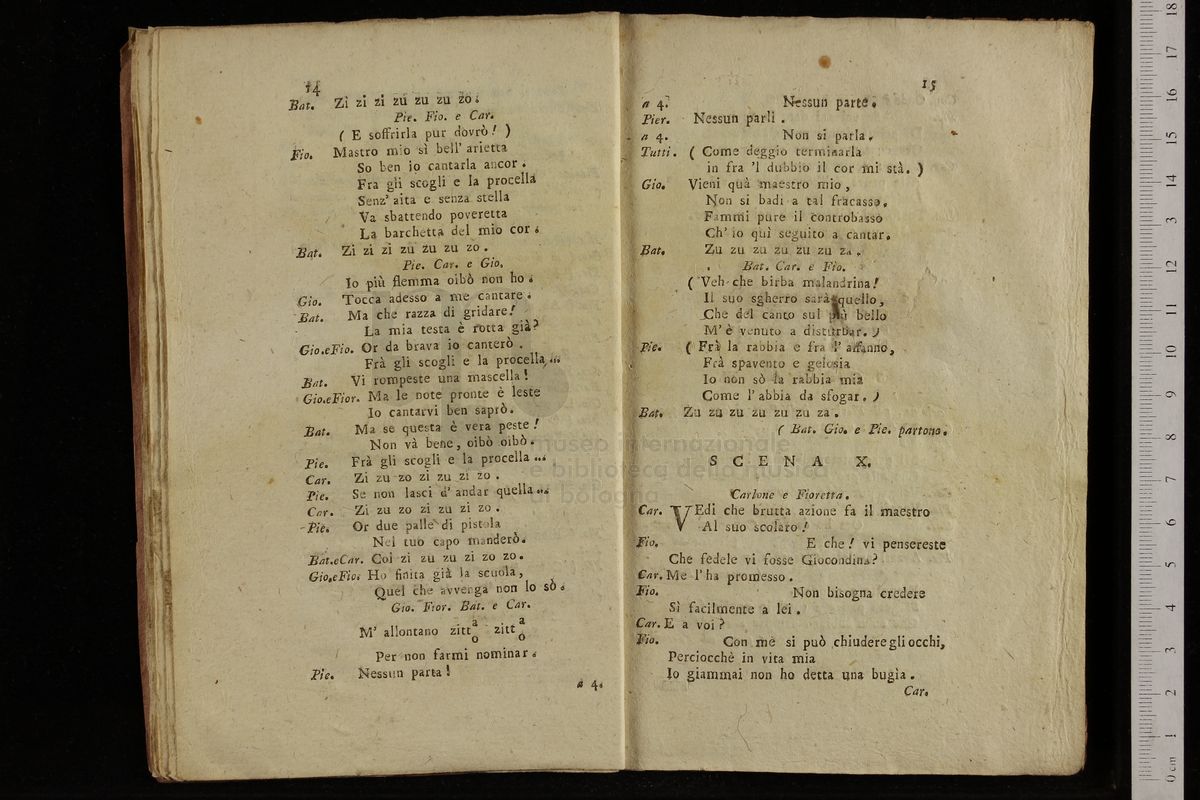 14
Bat. Zi zi zi zu zu zu zo.
Pie. Fio. e Car.
( E soffrirla pur dovrò! )
Fio. Mastro mio sì bell' arietta
So ben io cantarla ancor.
Fra gli scogli e la procella
Senz' aita e senza stella
Va sbattendo poveretta
La barchetta del mio cor.
Bat. Zi zi zi zu zu zu zo.
Pie. Car. e Gio.
Io più flemma oibò non ho.
Gio. Tocca adesso a me cantare.
Bat. Ma che razza di gridare!
La mia testa è rotta già?
Gio.eFio. Or da brava io canterò.
Frà gli scogli e la procella...
Bat. Vi rompeste una mascella!
Gio.eFior. Ma le note pronte è leste
Io cantarvi ben saprò.
Bat. Ma se questa è vera peste!
Non và bene, oibò oibò.
Pie. Frà gli scogli e la procella...
Car. Zi zu zo zi zu zi zo.
Pie. Se non lasci d' andar quella...
Car. Zi zu zo zi zu zi zo.
Pie. Or due palle di pistola
Nel tuo capo manderò.
Bat.eCar. Coi zi zu zu zi zo zo.
Gio.eFio. Ho finita già la scuola,
Quel che avvenga non lo sò.
Gio. Fior. Bat. e Car.
M' allontano zitt a/o zitt a/o
Per non farmi nominar.
Pie. Nessun parta!
a 4.
15
a 4. Nessun parte.
Pier. Nessun parli.
a 4. Non si parla.
Tutti. ( Come deggio terminarla
in fra 'l dubbio il cor mi stà. )
Gio. Vieni quà maestro mio,
Non si badi a tal fracasso,
Fammi pure il controbasso
Ch' io quì seguito a cantar.
Bat. Zu zu zu zu zu zu za.
Bat. Car. e Fio.
( Veh che birba malandrina!
Il suo sgherro sarà quello,
Che del canto sul più bello
M' è venuto a disturbar. )
Pie. ( Frà la rabbia e fra l' affanno,
Frà spavento e gelosia
Io non sò la rabbia mia
Come l' abbia da sfogar. )
Bat. Zu zu zu zu zu zu za.
( Bat. Gio. e Pie. partono.
SCENA X.
Carlone e Fioretta.
Car. VEdi che brutta azione fa il maestro
Al suo scolaro!
Fio. E che! vi pensereste
Che fedele vi fosse Giocondina?
Car. Me l' ha promesso.
Fio. Non bisogna credere
Sì facilmente a lei.
Car. E a voi?
Fio. Con mè si può chiudere gli occhi,
Perciocchè in vita mia
Io giammai non ho detta una bugìa.
Car.
museo internazionale
e biblioteca della musica
di bologna
0 cm 1 2 3 4 5 6 7 8 9 10 11 12 13 14 15 16 17 18